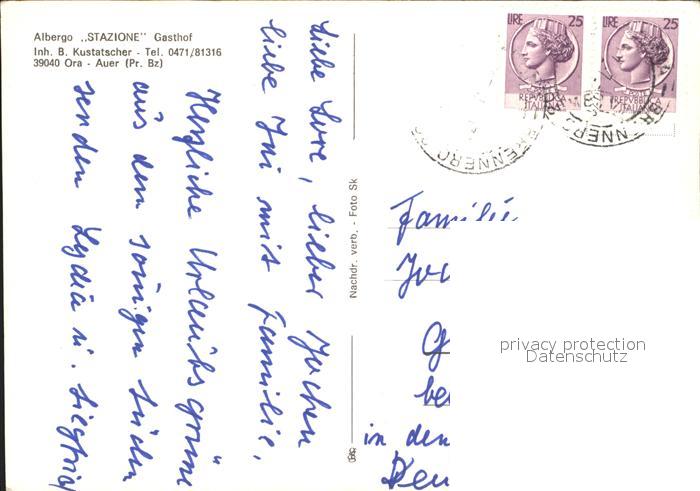 Albergo „STAZIONE" Gasthof
Inh. B. Kustatscher - Tel. 0471/81316
39040 Ora - Auer (Pr. Bz)
Liebe Lore, lieber Jochen
liebe Ini mit Familie,
Herzliche Urlaubsgrüße
aus dem sonnigen Süden
senden Lydia u. Siegfried
Nachdr. verb. - Foto Sk
LIRE 25
REPVBBLICA
ITALIANA
LIRE 25
REPVBBLICA
ITALIANA
BRENNERO
BRENNERO
Familie
in den
privacy protection
Datenschutz